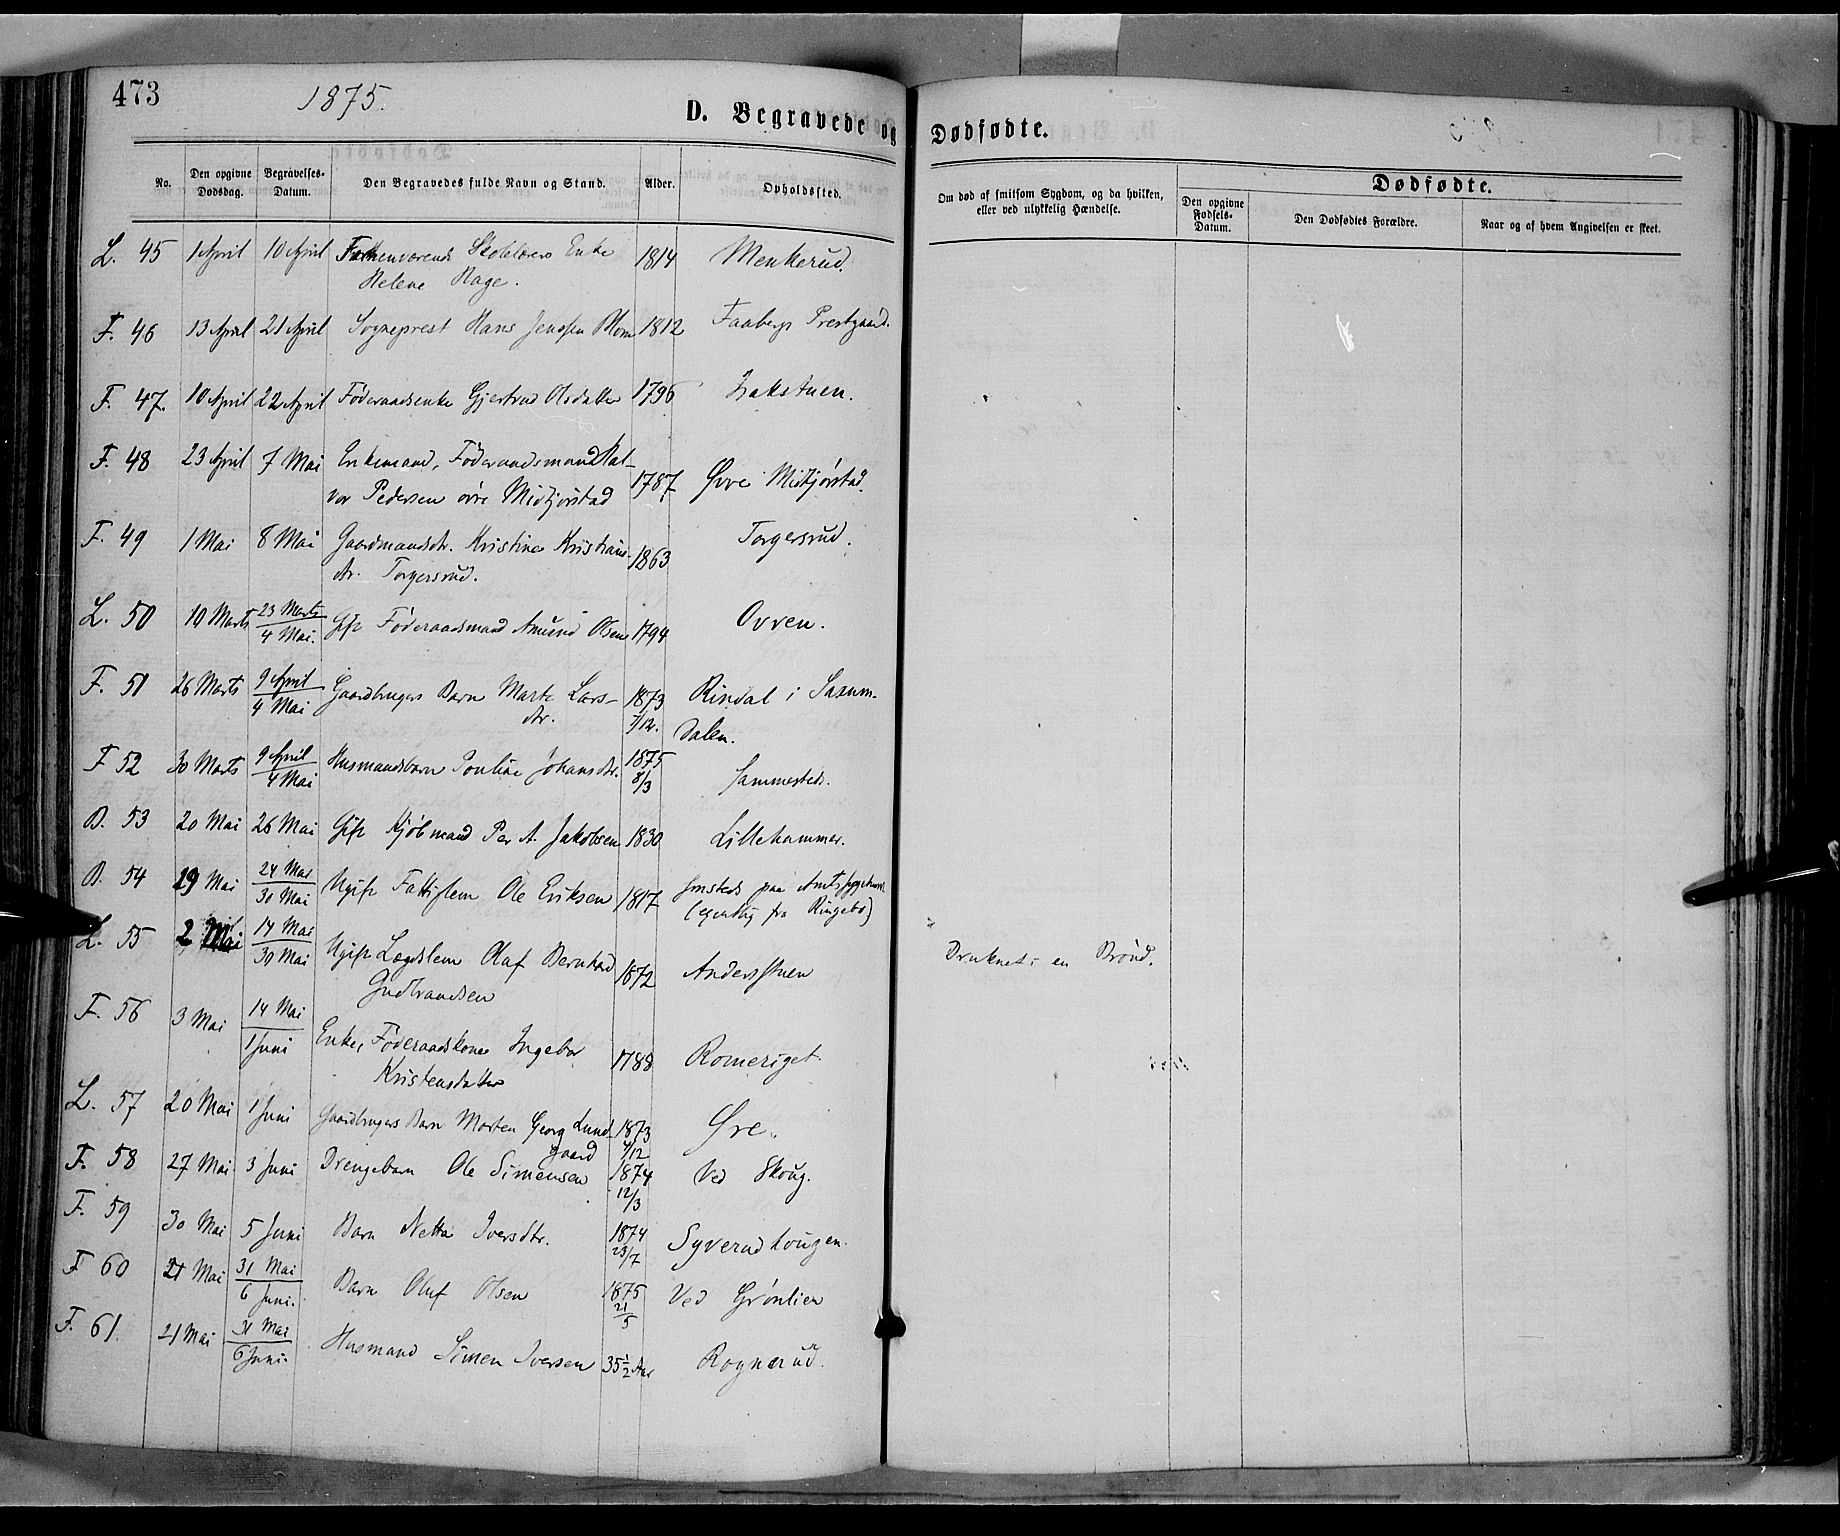 473
1875.
D. Begravede og Dødfødte.
No.
Den opgivne Dødsdag.
Begravelses-Datum.
Den Begravedes fulde Navn og Stand.
Alder.
Opholdssted.
Om død af smitsom Sygdom, og da hvilken,
eller ved ulykkelig Hændelse.
Dødfødte.
Den opgivne Fødsels-Datum.
Den Dødfødtes Forældre.
Naar og af hvem Angivelsen er skeet.
L. 45 1 April 10 April Forhenværende Skolelærers Enke 1814 Menkerud.
Helene Hage.
F. 46 13 April 21 April Sogneprest Hans Jensen Blom 1812 Faabergs Prestgaard.
F. 47. 10 April 22 April Føderaadsenke Gjertrud Olsdatter 1796 Bakstuen.
F. 48 23 April 7 Mai Enkemand, Føderaadsmand Hal-
vor Pedersen øvre Midtjørstad 1787 Øvre Midtjørstad.
F. 49 1 Mai 8 Mai Gaardmandsdtr. Kristine Kristians- 1863 Torgersrud.
dtr. Torgersrud.
L. 50 10 Marts 23 Marts / 4 Mai. Gift Føderaadsmand Amund Olsen 1794 Ovren.
F. 51 26 Marts 9 April / 4 Mai Gaardbrugers Barn Marte Lars- 1873 Rindal i Saxum-
dtr. 7/12. dalen.
F 52 30 Marts 9 April / 4 Mai Husmandsbarn Pauline Johansdtr. 1875 8/3 Sammesteds.
B. 53 20 Mai 26 Mai Gift Kjøbmand Per A. Jakobsen 1830 Lillehammer.
B. 54 19 Mai 24 Mai / 30 Mai Ugift Fattiglem Ole Eriksen 1817 paa Amtssygehuset
(egentlig fra Ringebo)
L. 55 2 Mai 14 Mai / 30 Mai Ugift Lægdslem Olaf Bernhard 1872 Andersstuen Druknet i en Brønd.
Gudbrandsen
F. 56 3 Mai 14 Mai / 1 Juni Enke, Føderaadskone Ingebor 1788 Romeriget.
Kristensdatter
L. 57 20 Mai 1 Juni Gaardbrugers Barn Morten Georg Lund- 1873 Øre.
gaard 4/12
F. 58 27 Mai 3 Juni Drengebarn Ole Simensen 1874 12/3 Ved Skoug.
F. 59 30 Mai 5 Juni Barn Netta Iversdtr. 1874 23/7 Syverudhougen.
F 60 21 Mai 31 Mai / 6 Juni. Barn Oluf Olsen 1875 21/5 Ved Grønlien
F. 61. 21 Mai 31 Mai / 6 Juni. Husmand Simen Iversen 35 1/2 Aar Rognerud.